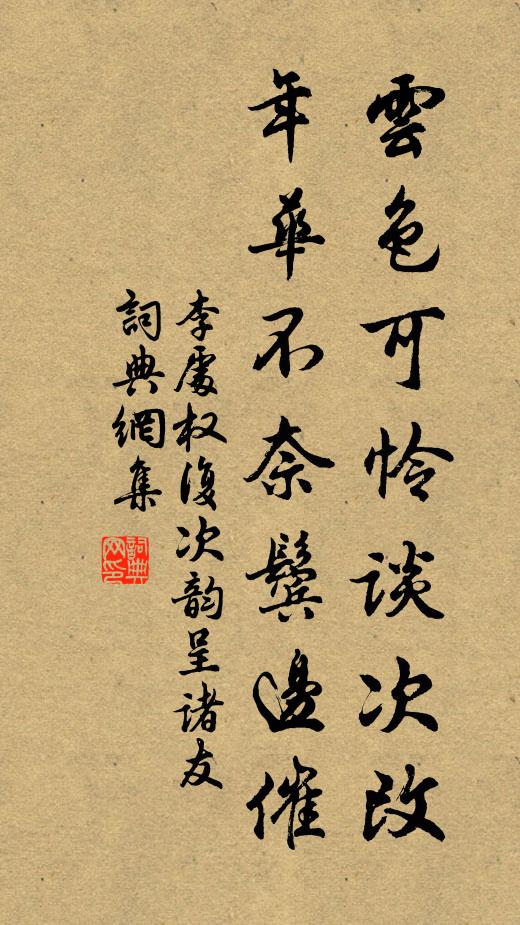 雲色可怜談次改
年華不奈鬢邊催
李處权復次韵呈诸友
詞典網集
詞典网印